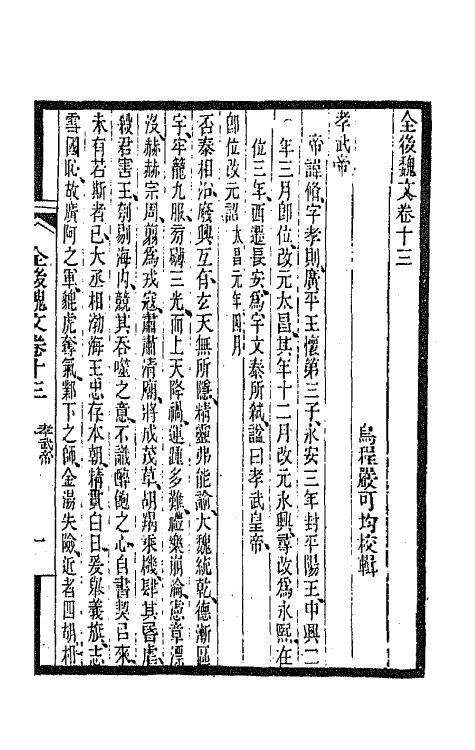 全後魏文卷十三
烏程嚴可均校輯
孝武帝
帝諱脩字孝則廣平王懷第三子永安三年封平陽王中興二
年三月卽位改元太昌其年十二月改元永興尋改爲永熙在
位三年西遷長安爲宇文泰所弑諡曰孝武皇帝
卽位改元詔太昌元年四月
否泰相㳂廢興互有玄天無所隱精靈弗能諭大魏統乾德漸區
宇牢籠九服旁礴三光而上天降禍運踵多難禮樂崩淪憲章漂
沒赫赫宗周翦爲戎寇肅肅清廟將成茂草胡羯乘機肆其昬虐
殺君害王刳剔海內競其吞噬之意不識醉飽之心自書契㠯來
未有若斯者已大丞相渤海王忠存本朝精貫白日爰舉義旗志
雪國恥故廣阿之軍貔虎奪氣鄴下之師金湯失險近者四胡相
全後魏文卷十三
孝武帝
一